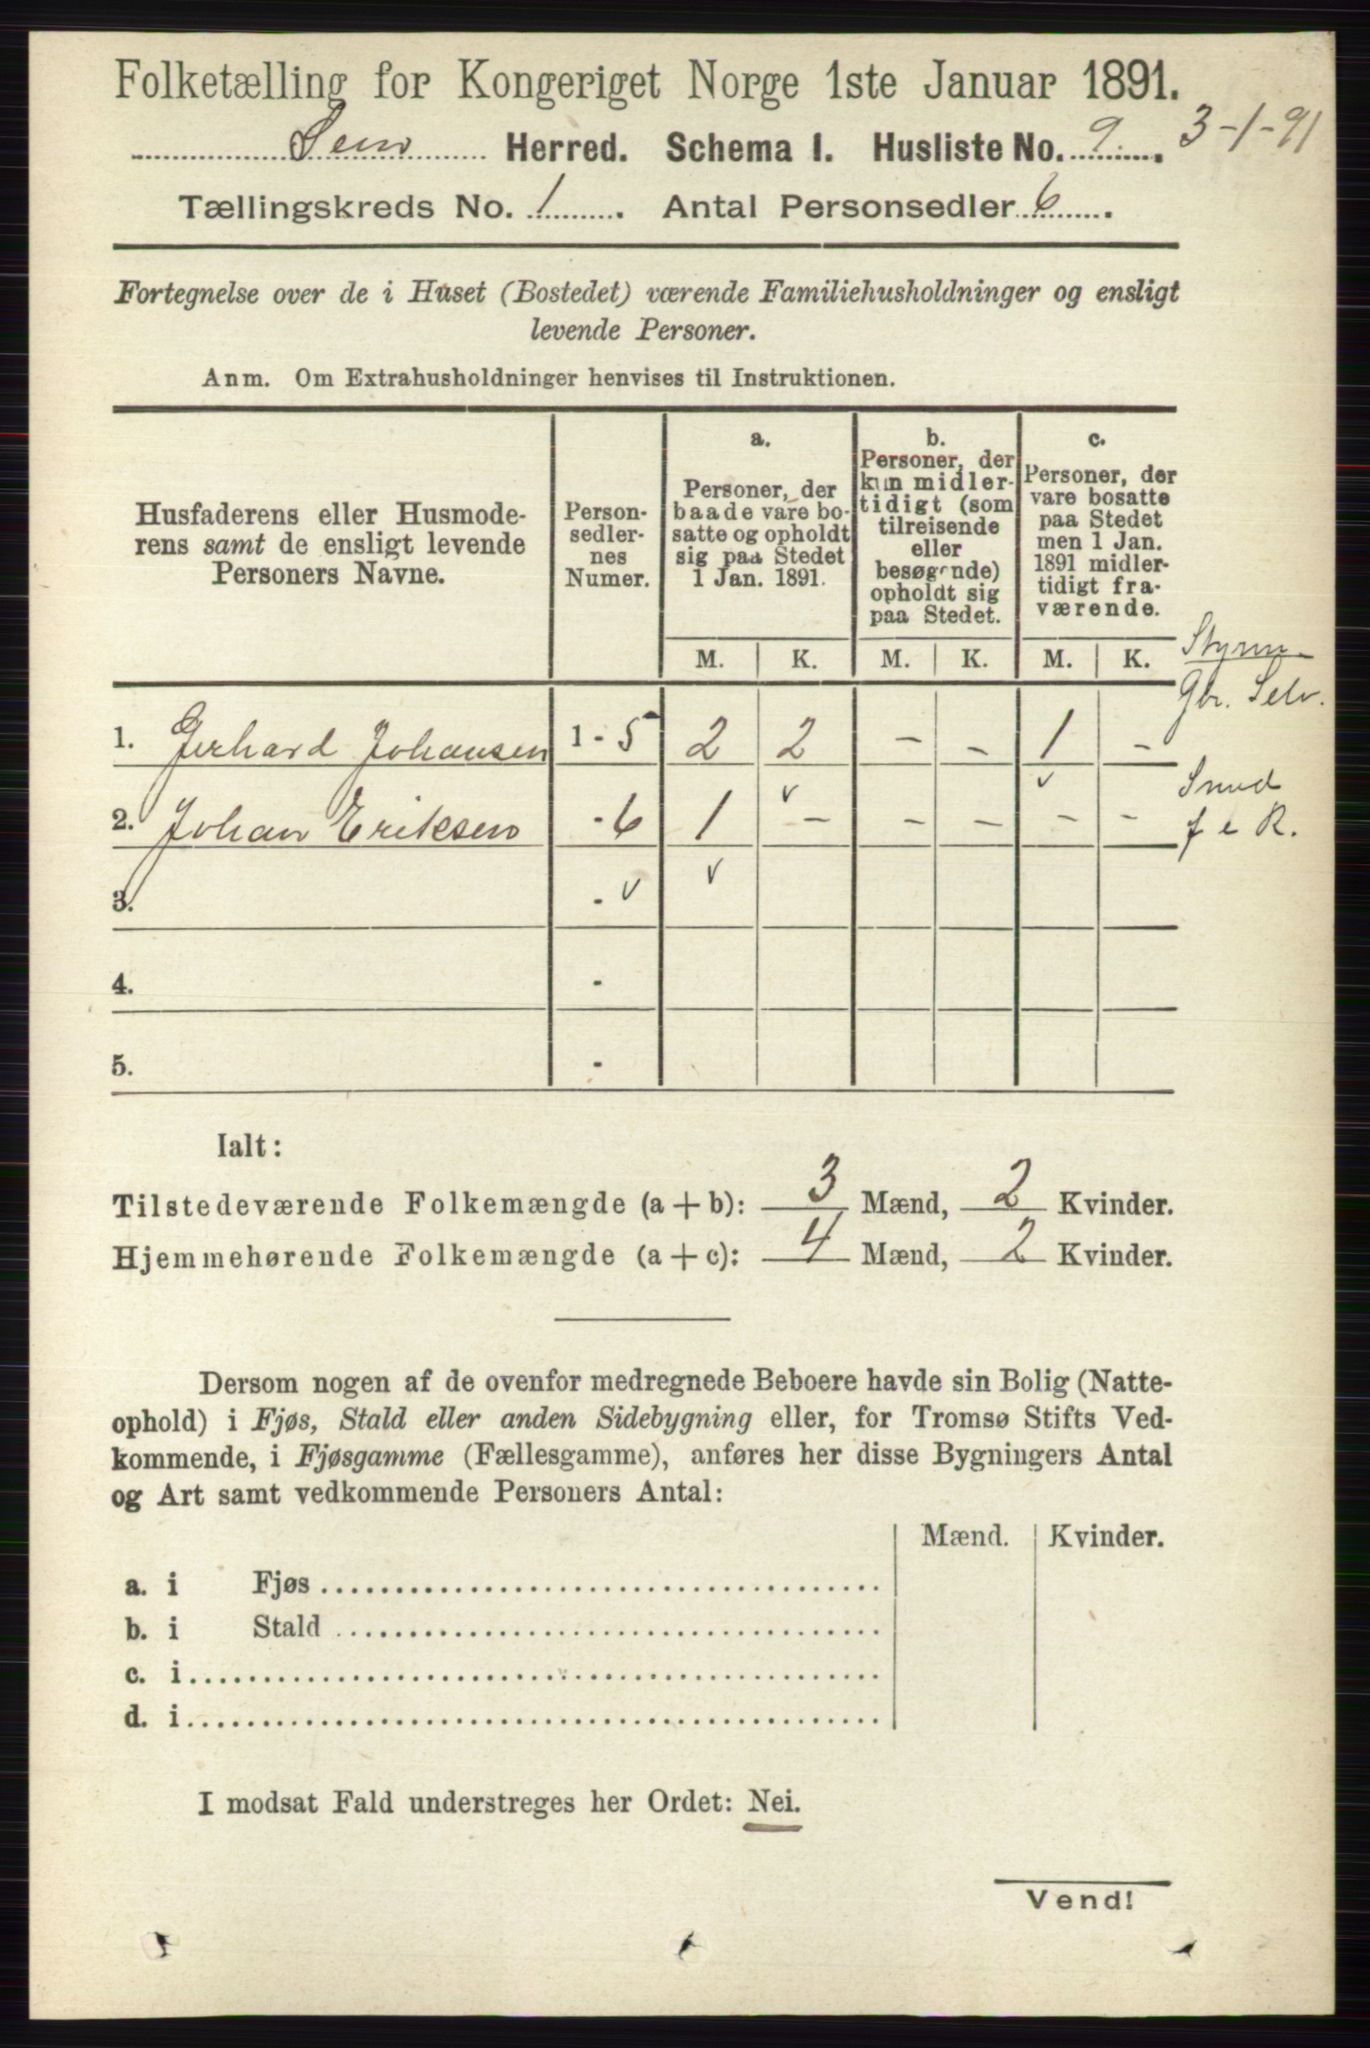 Folketælling for Kongeriget Norge 1ste Januar 1891.
Sem Herred. Schema I. Husliste No. 9. 3-1-91
Tællingskreds No. 1. Antal Personsedler 6.
Fortegnelse over de i Huset (Bostedet) værende Familiehusholdninger og ensligt
levende Personer.
Anm. Om Extrahusholdninger henvises til Instruktionen.
Husfaderens eller Husmode-
rens samt de ensligt levende
Personers Navne.
Person-
sedler-
nes
Numer.
a.
Personer, der
baade vare bo-
satte og opholdt
sig paa Stedet
1 Jan. 1891.
b.
Personer, der
kun midler-
tidigt (som
tilreisende
eller
besøgende)
opholdt sig
paa Stedet.
c.
Personer, der
vare bosatte
paa Stedet
men 1 Jan.
1891 midler-
tidigt fra-
værende.
M. K. M. K. M. K.
Gbr. Selv.
1. Gerhard Johansen 1 - 5 2 2 - - 1 -
Smed
2. Johan Eriksen - 6 1 - - - - -
f e R.
3. -
4. -
5. -
Ialt:
Tilstedeværende Folkemængde (a + b): 3 Mænd, 2 Kvinder.
Hjemmehørende Folkemængde (a + c): 4 Mænd, 2 Kvinder.
Dersom nogen af de ovenfor medregnede Beboere havde sin Bolig (Natte-
ophold) i Fjøs, Stald eller anden Sidebygning eller, for Tromsø Stifts Ved-
kommende, i Fjøsgamme (Fællesgamme), anføres her disse Bygningers Antal
og Art samt vedkommende Personers Antal:
Mænd. Kvinder.
a. i Fjøs
b. i Stald
c. i
d. i
I modsat Fald understreges her Ordet: Nei.
Vend!